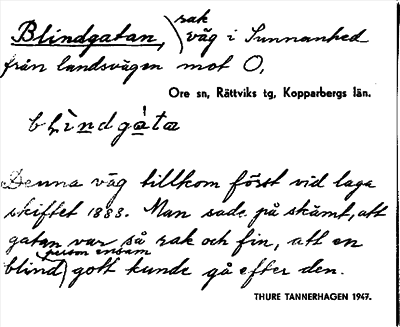 Blindgatan, rak väg i Sunnanhed
från landsvägen mot O,
Ore sn, Rättviks tg, Kopparbergs län.
blìndgáta
Denna väg tillkom först vid laga
skiftet 1883. Man sade på skämt, att
gatan var så rak och fin, att en
blind person ensam gott kunde gå efter den.
THURE TANNERHAGEN 1947.